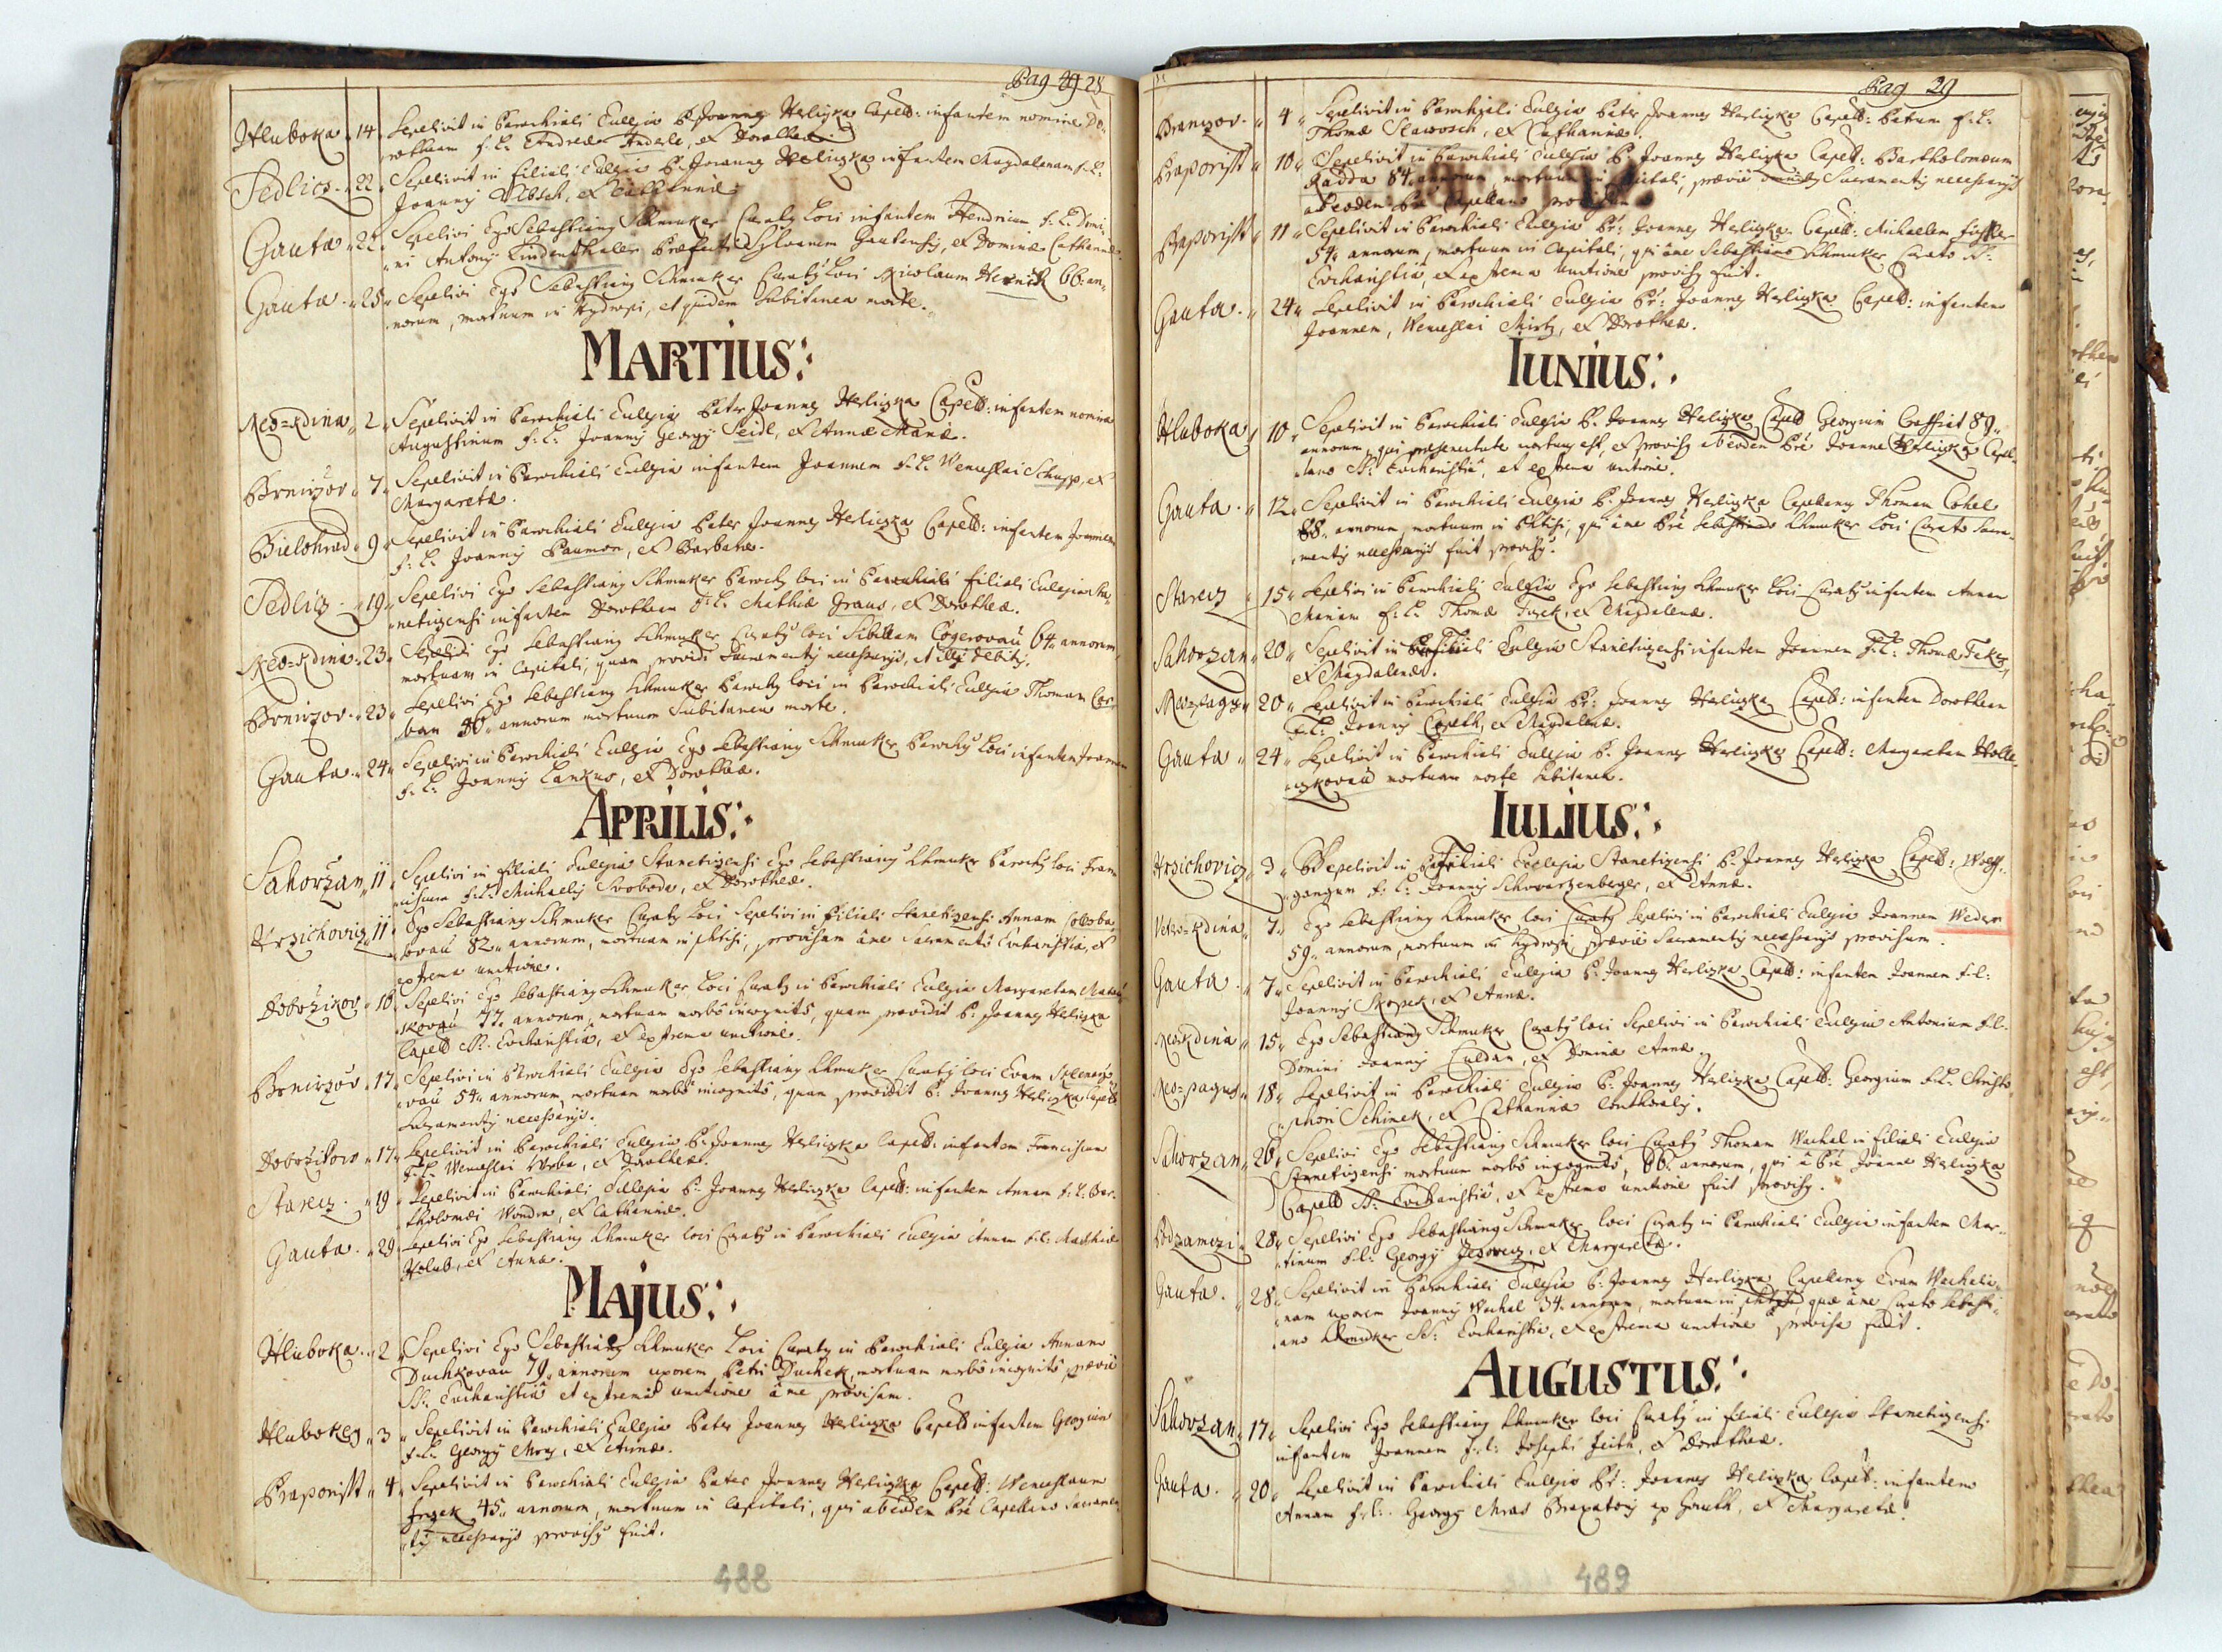 Pag 29 28
Hluboka 14 Sepelivit in Parochiali Ecclesia P. Joannes Herliczka Capell: infantem nomine Do-
rotheam f: l: Andreæ Anderle, et Dorotheæ.
Sedlicz 22 Sepelivit in filiali Ecclesia P. Joannes Herliczka infantem Magdalenam f: l:
Joannis
Gauta 22 Sepelivi Ego Sebastianus Schmuker Curatus Loci infantem Hendricum f: l: Domi-
ni Antonij Lindenthaller Præfecti Sylvarum Gautensis, et Dominæ Catharinæ
Gauta 25 Sepelivi Ego Sebastianus Schmuker Curatus Loci Nicolaum Hernik 66 an-
norum, mortuum in Hydropi, et quidem subitanea morte.
MARTIUS:
Neo-Kdina 2 Sepelivit in Parochiali Ecclesia Pater Joannes Herliczka Capell: infantem nomine
Augustinum f: l: Joannis Georgij Seidl, et Annæ Mariæ.
Brnirzov 7 Sepelivit in Parochiali Ecclesia infantem Joannem f: l: Wenceslai Schupp, et
Margaretæ.
Bielohrad 9 Sepelivit in Parochiali Ecclesia Pater Joannes Herliczka Capell: infantem Joannem
f: l: Joannis Paumon, et Barbaræ.
Sedlicz 19 Sepelivi Ego Sebastianus Schmuker Parochus loci in Parochiali filiali Ecclesia Sta-
netizensi infantem Dorotheam f: l: Mathiæ Graus, et Dorotheæ.
Neo-Kdina 23 Sepelivi Ego Sebastianus Schmuker Curatus loci Sibillam Cogerovau 64 annorum,
mortuam in Capitali, quam providi Sacramentis necessarijs, et illi debitis.
Brnirzov 23 Sepelivi Ego Sebastianus Schmuker Parochus loci in Parochiali Ecclesia Thomam Cor-
ban annorum mortuum subitanea morte.
Gauta 24 Sepelivi in Parochiali Ecclesia Ego Sebastianus Schmuker Parochus Loci infantem Joannem
f: l: Joannis Lankus, et Dorotheæ.
APRILIS:
Sahorzan 11 Sepelivi in filiali Ecclesia Stanetizensi Ego Sebastianus Schmuker Parochus loci Fran-
ciscum f: l: Michaelis Svoboda, et Dorotheæ.
Hrzichovicz 11 Ego Sebastianus Schmuker Curatus Loci Sepelivi in filiali Stanetizensi Annam
82 annorum, mortuam in phtisi, provisam a me Sacramento Eucharistiæ, et
extrema unctione.
Dobrzikov 16 Sepelivi Ego Sebastianus Schmuker Loci Curatus in Parochiali Ecclesia Margaretam
skovau 77 annorum, mortuam morbo incognito, quam providit P: Joannes Herliczka
Capell SS. Eucharistia, et extrema unctione.
Brnirzov 17 Sepelivi in Parochiali Ecclesia Ego Sebastianus Schmuker Curatus loci Evam
vau 54 annorum mortuam morbo incognito, quam providit P: Joannes Herliczka Capell
Sacramentis necessarijs.
Dobrzikow 17 Sepelivit in Parochiali Ecclesia P: Joannes Herliczka Capell: infantem Franciscum
f: l: Wenceslai Vrba, et Dorotheæ.
Starecz 19 Sepelivit in Parochiali Ecclesia P: Joannes Herliczka Capell: infantem Annam f: l: Bar-
tholomæi Wondra, et Catharinæ.
Gauta 29 Sepelivi Ego Sebastianus Schmuker loci Curatus in Parochiali Ecclesia Annam f: l: Mathiæ
Holub, et Annæ.
MAJUS:
Hluboka 2 Sepelivi Ego Sebastianus Schmuker Loci Curatus in Parochiali Ecclesia Annam
Duchkovau 79 annorum uxorem Petri Duchek, mortuam morbo incognito prævie
SS. Eucharistia et extrema unctione a me provisam.
Hlubokey 3 Sepelivit in Parochiali Ecclesia Pater Joannes Herliczka Capell infantem Georgium
f: l: Georgij Mras, et Annæ.
Praporist 4 Sepelivit in Parochiali Ecclesia Pater Joannes Herliczka Capell: Wenceslaum
45 annorum, mortuum in Capitali, qui ab eodem Pre Capellano Sacramen-
tis necessarijs provisus fuit.
488
Pag 29
Branizov 4 Sepelivit in Parochiali Ecclesia Pater Joannes Herliczka Capell: Petrum f: l:
Thomæ Slawosch, et Catharinæ.
Praporist 10 Sepelivit in Parochiali Ecclesia P: Joannes Herliczka Capell: Bartholomæum
Kadda 84 annorum, mortuum in Capitali, prævie Sacramentis necessarijs
ab eodem Pre Capellano
Praporist 11 Sepelivit in Parochiali Ecclesia Pr: Joannes Herliczka Capell: Michaelem Fischer
54 annorum, mortuum in Capitali, qui a me Sebastiano Schmuker Curato SS:
Eucharistia, et extrema unctione provisus fuit.
Gauta 24 Sepelivit in Parochiali Ecclesia Pr: Joannes Herliczka Capell: infantem
Joannem, Wenceslai et Dorotheæ.
IUNIUS:
Hluboka 10 Sepelivit in Parochiali Ecclesia P. Joannes Herliczka Capell Georgium 89
annorum, qui præ senectute mortuus est, et provisus ab eodem Pre Joanne Herliczka Capel-
lano SS: Eucharistia, et extrema unctione.
Gauta 12 Sepelivit in Parochiali Ecclesia P. Joannes Herliczka Capellanus Thomam Cohel
88 annorum, mortuum in Phtisi, qui a me Pre Sebastiano Schmuker Loci Curato Sacra-
mentis necessarijs fuit provisus.
Starecz 15 Sepelivi in Parochiali Ecclesia Ego Sebastianus Schmuker Loci Curatus infantem Annam
Mariam f: l: Thomæ Turek, et Magdalenæ.
Sahorzan 20 Sepelivit in Ecclesia Stanetizensi infantem Joannem f: l: Thomæ
et Magdalenæ.
Neo-pagus 20 Sepelivit in Parochiali Ecclesia Pr: Joannes Herliczka Capell: infantem Dorotheam
f: l: Joannis et Magdalenæ.
Gauta 24 Sepelivit in Parochiali Ecclesia P. Joannes Herliczka Capell: Margaretam Holle-
czkovau mortuam morte subitanea.
IULIUS:
Hrzichovicz 3 Sepelivit in Ecclesia Stanetizensi P: Joannes Herliczka Capell: Wolff-
gangum f: l: Joannis Schwartzenberger, et Annæ.
Vetero-Kdina 7 Ego Sebastianus Schmuker loci Curatus Sepelivi in Parochiali Ecclesia Joannem Weder
59 annorum, mortuum in Hydropi, prævie Sacramentis necessarijs provisum.
Gauta 7 Sepelivit in Parochiali Ecclesia P: Joannes Herliczka Capell: infantem Joannem f: l:
Joannis Skopek, et Annæ.
Neo-Kdina 15 Ego Sebastianus Schmuker Curatus loci Sepelivi in Parochiali Ecclesia Antonium f: l:
Domini Joannis Culdan, et Dominæ Annæ.
Neo-pagus 18 Sepelivit in Parochiali Ecclesia P: Joannes Herliczka Capell: Georgium f: l: Christo-
phori Schimek, et Catharinæ Conthoralis.
Sahorzan 26 Sepelivi Ego Sebastianus Schmuker loci Curatus Thomam Wachal in filiali Ecclesia
Stanetizensi mortuum morbo incognito, 66 annorum, qui a Pre Joanne Herliczka
Capell SS: Eucharistia, et extrema unctione fuit provisus.
Podzamczi 28 Sepelivi Ego Sebastianus Schmuker loci Curatus in Parochiali Ecclesia infantem Mar-
tinum f: l: Georgij et Margaretæ.
Gauta 28 Sepelivit in Parochiali Ecclesia P: Joannes Herliczka Capellanus Evam Wachali-
nam uxorem Joannis Wachal 34 annorum, mortuam in phtysi, quæ a me Curato Sebasti-
ano Schmuker SS: Eucharistia, et extrema unctione provisa fuit.
AUGUSTUS:
Sahorzan 17 Sepelivi Ego Sebastianus Schmuker loci Curatus in filiali Ecclesia Stanetizensi
infantem Joannem f: l: Josephi Zeith, et Dorotheæ.
Gauta 20 Sepelivit in Parochiali Ecclesia Pr: Joannes Herliczka Capell: infantem
Annam f: l: Georgij Mras Braxatoris ex Gauth, et Margaretæ.
489